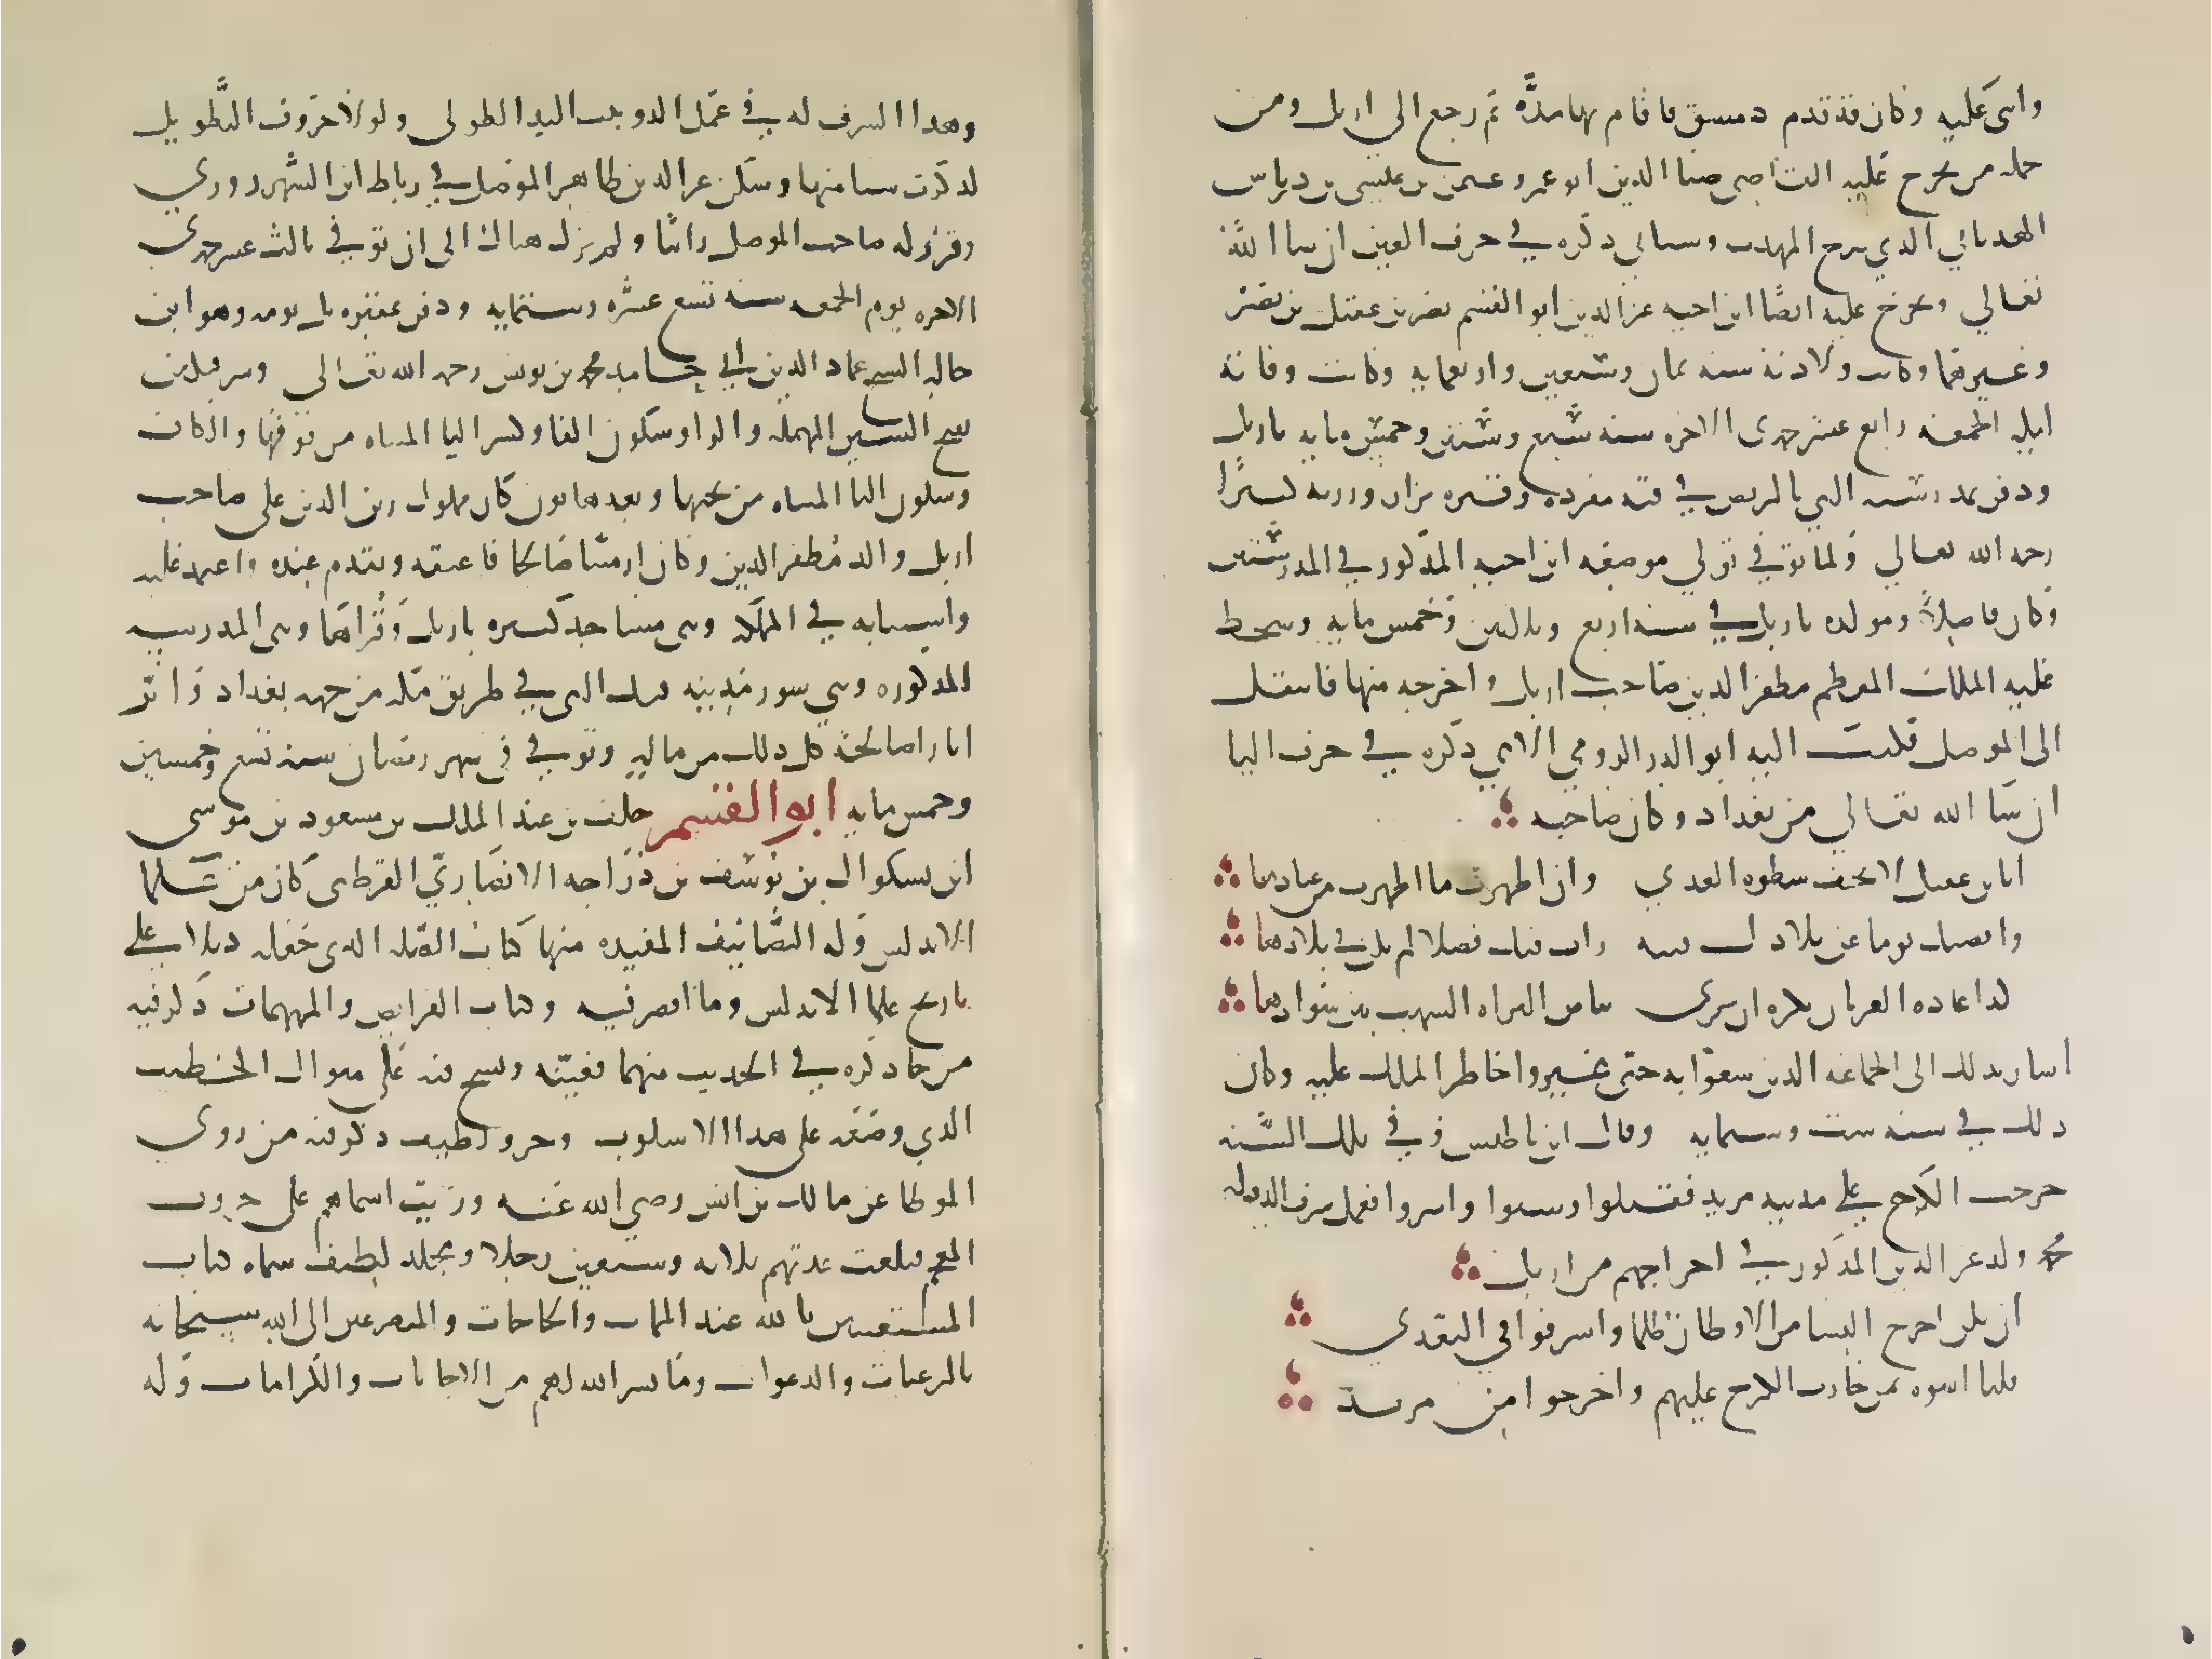 واثنى عليه وكان قد تقدم دمشق فاقام بها مدة ثم رجع الى اربل ومن
جملة من تخرج عليه القاضي ضيا الدين ابو عمرو عثمن بن عيسى بن درباس
الهدباني الذي شرح المهذب وسياتي ذكره في حرف العين ان شا الله
تعالي وتخرج عليه ايضا ابن اخيه عز الدين ابو القسم نصر بن عقيل بن نصر
وغيرهما وكانت ولادته سنه ثمان وسبعين واربعمايه وكانت وفاته
ليله الجمعه رابع عشر جمدى الاخره سنه سبع وستين وخمس مايه باربل
ودفن بمدرسته التي بالربض في قبه مفرده وقبره يزار وزرته كثيرا
رحمه الله تعالي ولما توفي تولي موضعه ابن اخيه المذكور في المدرستين
وكان فاضلا ومولده باربل في سنه اربع وثلاثين وخمس مايه وسخط
عليه الملك المعظم مظفر الدين صاحب اربل واخرجه منها فانتقل
الى الموصل فكتب اليه ابو الدر الرومي الاتي ذكره في حرف اليا
ان شا الله تعالي من بغداد وكان صاحبه
ايا بن عقيل لا تخف سطوه العدي وان اظهرت ما اظهرت من عنادها
واقصتك يوما عن بلادك فتيه رات فيك فضلا لم يكن في بلادها
كذا عاده الغربان تكره ان ترى بياض البزاه الشهب بين سوادها
اشار بذلك الى الجماعه الذين سعوا به حتى غيروا خاطر الملك عليه وكان
ذلك في سنه ست وستمايه وقال ابن باطيس وفي تلك السنه
خرجت الكرج على مدينه مرند فقتلوا وسبوا واسروا فعمل شرف الدوله
محمد ولد عز الدين المذكور في اخراجهم من اربل
ان يكن اخرج النسا من الاوطان ظلما واسرفوا في التعدي
فلنا اسوه بمن جارت الكرج عليهم واخرجوا من مرند
وهذا الشرف له في عمل الدوبيت اليد الطولى ولولا خوف التطويل
لذكرت شيا منها وسكن عز الدين ظاهر الموصل في رباط ابن الشهرزوري
وقرر له صاحب الموصل راتبا ولم يزل هناك الى ان توفي ثالث عشر جمدى
الاخره يوم الجمعه سنه تسع عشره وستمايه ودفن بمقبره تل توبه وهو ابن
خاله الشيخ عماد الدين ابي حامد محمد بن يونس رحمه الله تعالى وسرفتكين
بفتح السين المهمله والواو سكون الفا وكسر اليا المثناه من فوقها والكاف
وسكون اليا المثناه من تحتها وبعدها نون كان مملوك زين الدين علي صاحب
اربل والد مظفر الدين وكان ارمنيا صالحا فاعتقه وتقدم عنده واعتمد عليه
واستنابه في المملكه وبنى مساجد كثيره باربل وقراها وبنى المدرسه
المذكوره وبني سور مدينه فيد التي في طريق مكه من جهه بغداد واثر
اثارا صالحه كل ذلك من ماله وتوفي في شهر رمضان سنه تسع وخمسين
وخمس مايه ابو القسم خلف بن عبد الملك بن مسعود بن موسى
ابن بشكوال بن يوسف بن داحه الانصاري القرطبي كان من علما
الاندلس وله التصانيف المفيده منها كتاب الصله الذى جعله ذيلا على
تاريخ علما الاندلس وما اقصر فيه وكتاب الغرايب والمبهمات ذكر فيه
من جا ذكره في الحديث مبهما فعينه ونسج فيه على منوال الخطيب
الذي وضعه على هذا الاسلوب وجزو لطيف ذكر فيه من روى
الموطا عن مالك بن انس رضي الله عنه ورتب اسماهم على حروف
المعجم فبلغت عدتهم ثلاثه وسبعين رجلا ومجلد لطيف سماه كتاب
المستغيثين بالله عند المهمات والحاجات والمتضرعين الى الله سبحانه
بالرغبات والدعوات وما يسر الله لهم من الاجابات والكرامات وله